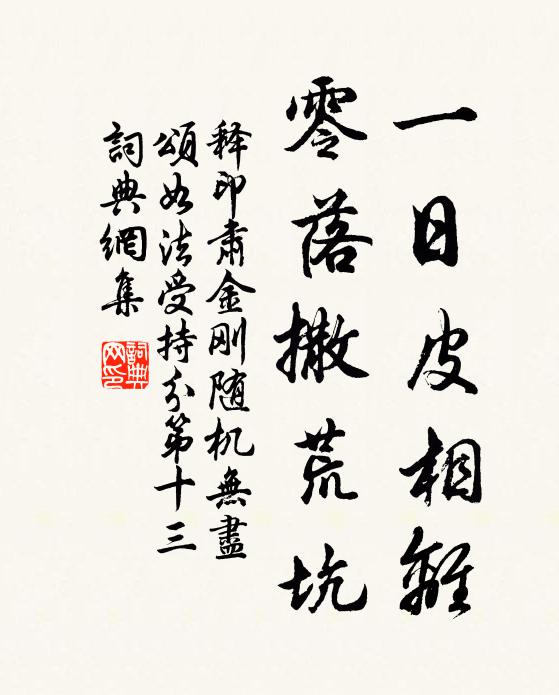 一日皮相離
零落撒荒坑
释印肅金刚随机無盡
頌如法受持分第十三
詞典網集
詞典網印